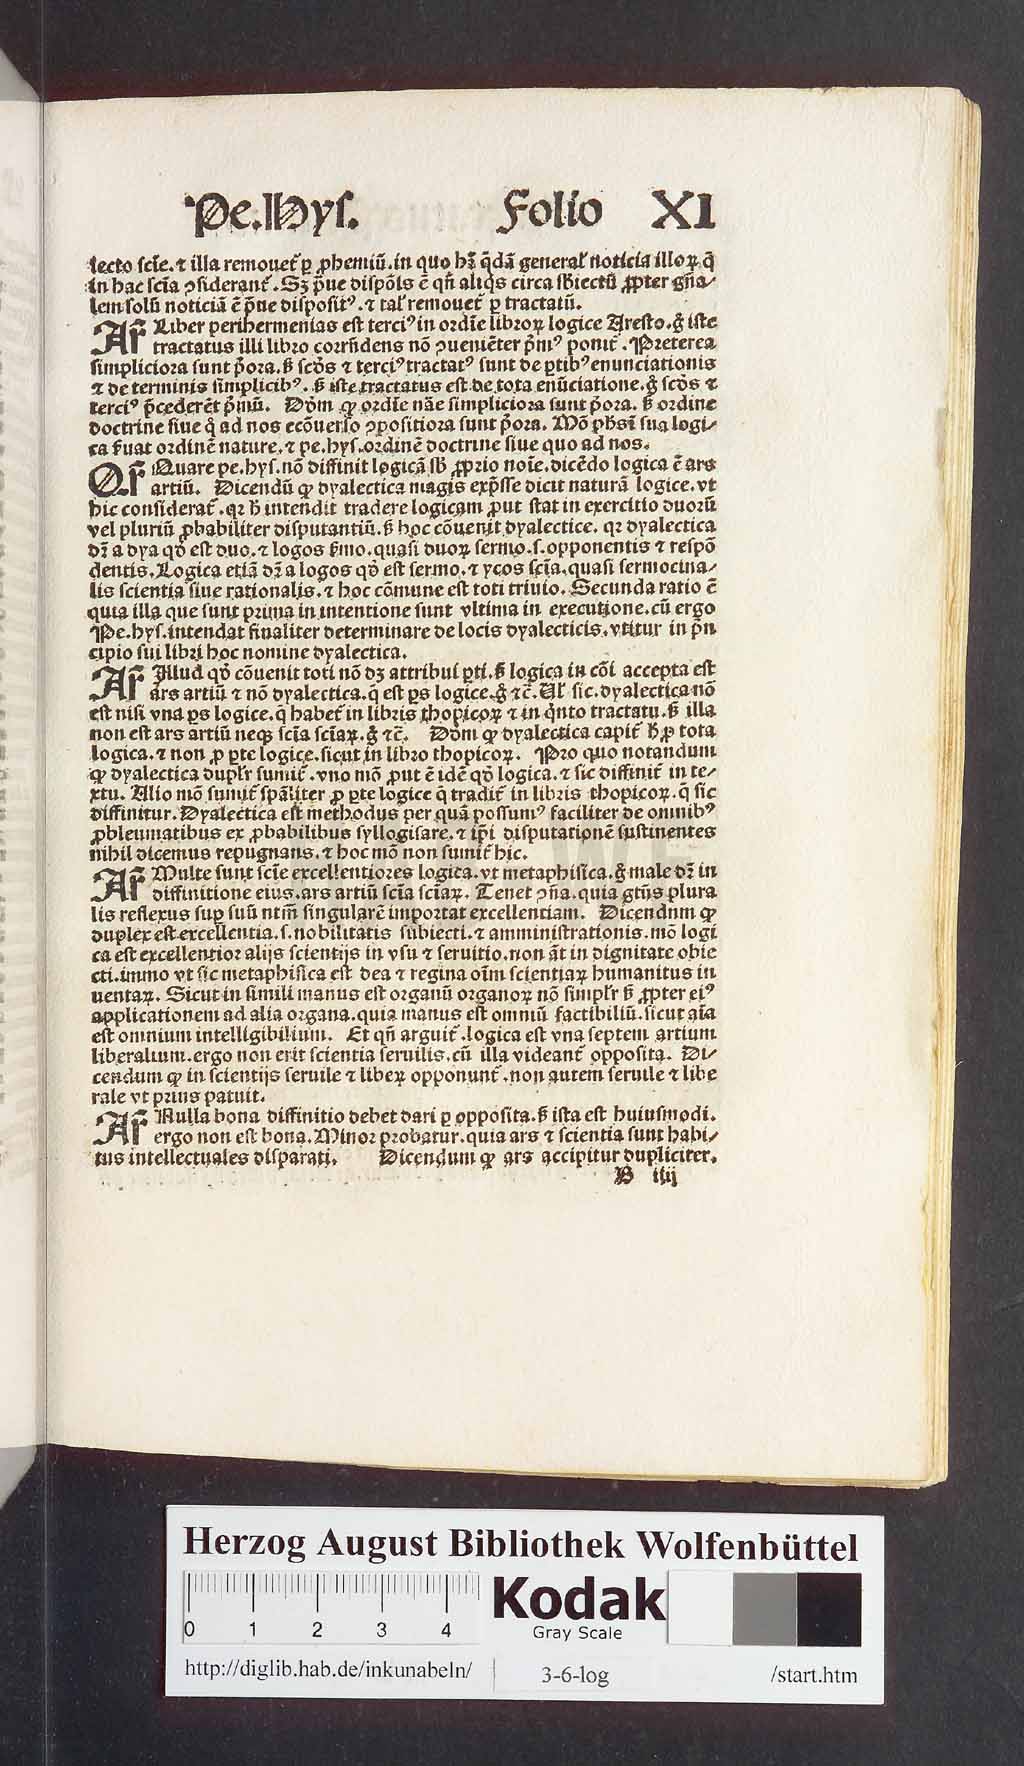 Pe.Hys. Folio XI
lecto scie̅. ⁊ illa remouet᷑ ꝑ ꝓhemiu̅. in quo hꝫ q̅da̅ general᷑ noticia illoꝝ q̅
in hac sci̅a ꝯsiderant᷑. Sꝫ p̅ue dispo̅ls e̅ qn̅ aliqs circa sb̅iectu̅ ꝓpter gn̅a⸗
lem solu̅ noticia̅ e̅ p̅ue disposit⁹. ⁊ tal᷑ remouet᷑ ꝑ tractatu̅.
Ar᷑ Liber perihermenias est terci⁹ in ordi̅e libroꝝ logice Aresto. g̊ iste
tractatus illi libro corrn̅dens no̅ ꝯuenie̅ter p̅m⁹ ponit᷑. Preterea
simpliciora sunt p̅ora. ꝫ sco̅s ⁊ terci⁹ tractat⁹ sunt de ꝑtib⁹ enunciationis
⁊ de terminis simplicib⁹. ꝫ iste tractatus est de tota enu̅ciatione. g̊ sco̅s ⁊
terci⁹ p̅cedere̅t p̅mu̅. Do̅m ꝙ ordi̅e na̅e simpliciora sunt p̅ora. ꝫ ordine
doctrine siue q̊ ad nos eco̅uerso ꝯpositiora sunt p̅ora. Mo̅ ph̅s i̅ sua logi⸗
ca ẜuat ordine̅ nature. ⁊ pe. hys. ordine̅ doctrine siue quo ad nos.
Qr᷑ Quare pe. hys. no̅ diffinit logica̅ sb̅ ꝓprio noi̅e. dice̅do logica e̅ ars
artiu̅. Dicendu̅ ꝙ dyalectica magis exp̅sse dicit natura̅ logice. vt
hic considerat᷑. qꝛ h̅ intendit tradere logicam ꝓut stat in exercitio duoru̅
vel pluriu̅ ꝓbabiliter disputantiu̅. ꝫ hoc co̅uenit dyalectice. qꝛ dyalectica
dꝫ a dya qo̅ est duo. ⁊ logos ẜmo. quasi duoꝝ sermo. s. opponentis ⁊ respo̅
dentis. Logica etia̅ dꝫ a logos qo̅ est sermo. ⁊ ycos sci̅a. quasi sermocina⸗
lis scientia siue rationalis. ⁊ hoc co̅mune est toti triuio. Secunda ratio e̅
quia illa que sunt prima in intentione sunt vltima in executione. cu̅ ergo
Pe. hys. intendat finaliter determinare de locis dyalecticis. vtitur in p̅n
cipio sui libri hoc nomine dyalectica.
Ar᷑ Illud qo̅ co̅uenit toti no̅ dꝫ attribui ꝑti. ꝫ logica in co̅i accepta est
ars artiu̅ ⁊ no̅ dyalectica. q̅ est ꝑs logice. g̊ ⁊c̅. Ul᷑ sic. dyalectica no̅
est nisi vna ꝑs logice. q̅ habet᷑ in libris thopicoꝝ ⁊ in q̅nto tractatu. ꝫ illa
non est ars artiu̅ neqꝫ sci̅a sci̅aꝝ. g̊ ⁊c̅. Do̅m ꝙ dyalectica capit᷑ h̅ ꝓ tota
logica. ⁊ non ꝓ ꝑte logice. sicut in libro thopicoꝝ. Pro quo notandum
ꝙ dyalectica duplr᷑ sumit᷑. vno mo̅ ꝓut e̅ ide̅ qo̅ logica. ⁊ sic diffinit᷑ in te⸗
xtu. Alio mo̅ sumit᷑ spa̅liter ꝓ ꝑte logice q̅ tradit᷑ in libris thopicoꝝ. q̅ sic
diffinitur. Dyalectica est methodus per qua̅ possum⁹ faciliter de omnib⁹
ꝓbleumatibus ex ꝓbabilibus syllogisare. ⁊ ip̅i disputatione̅ sustinentes
nihil dicemus repugnans. ⁊ hoc mo̅ non sumit᷑ hic.
Ar᷑ Multe sunt scie̅ excellentiores logica. vt metaphisica. g̊ male dꝫ in
diffinitione eius. ars artiu̅ sci̅a sci̅aꝝ. Tenet ꝯn̅a. quia gtn̅s plura
lis reflexus suꝑ suu̅ ntm̅ singulare̅ importat excellentiam. Dicendum ꝙ
duplex est excellentia. s. nobilitatis subiecti. ⁊ amministrationis. mo̅ logi
ca est excellentior alijs scientijs in vsu ⁊ seruitio. non a̅t in dignitate obie
cti. immo vt sic metaphisica est dea ⁊ regina oi̅m scientiaꝝ humanitus in
uentaꝝ. Sicut in simili manus est organu̅ organoꝝ no̅ simplr᷑ ꝫ ꝓpter ei⁹
applicationem ad alia organa. quia manus est omniu̅ factibiliu̅. sicut ai̅a
est omnium intelligibilium. Et qn̅ arguit᷑. logica est vna septem artium
liberalium. ergo non erit scientia seruilis. cu̅ illa videant᷑ opposita. Di⸗
cendum ꝙ in scientijs seruile ⁊ libeꝝ opponunt᷑. non autem seruile ⁊ libe
rale vt prius patuit.
Ar᷑ Nulla bona diffinitio debet dari ꝑ opposita. ꝫ ista est huiusmodi.
ergo non est bona. Minor probatur. quia ars ⁊ scientia sunt habi⸗
tus intellectuales disparati. Dicendum ꝙ ars accipitur dupliciter.
B iiij
Herzog August Bibliothek Wolfenbüttel
0 1 2 3 4
Kodak
Gray Scale
http://diglib.hab.de/inkunabeln/ 3-6-log /start.htm